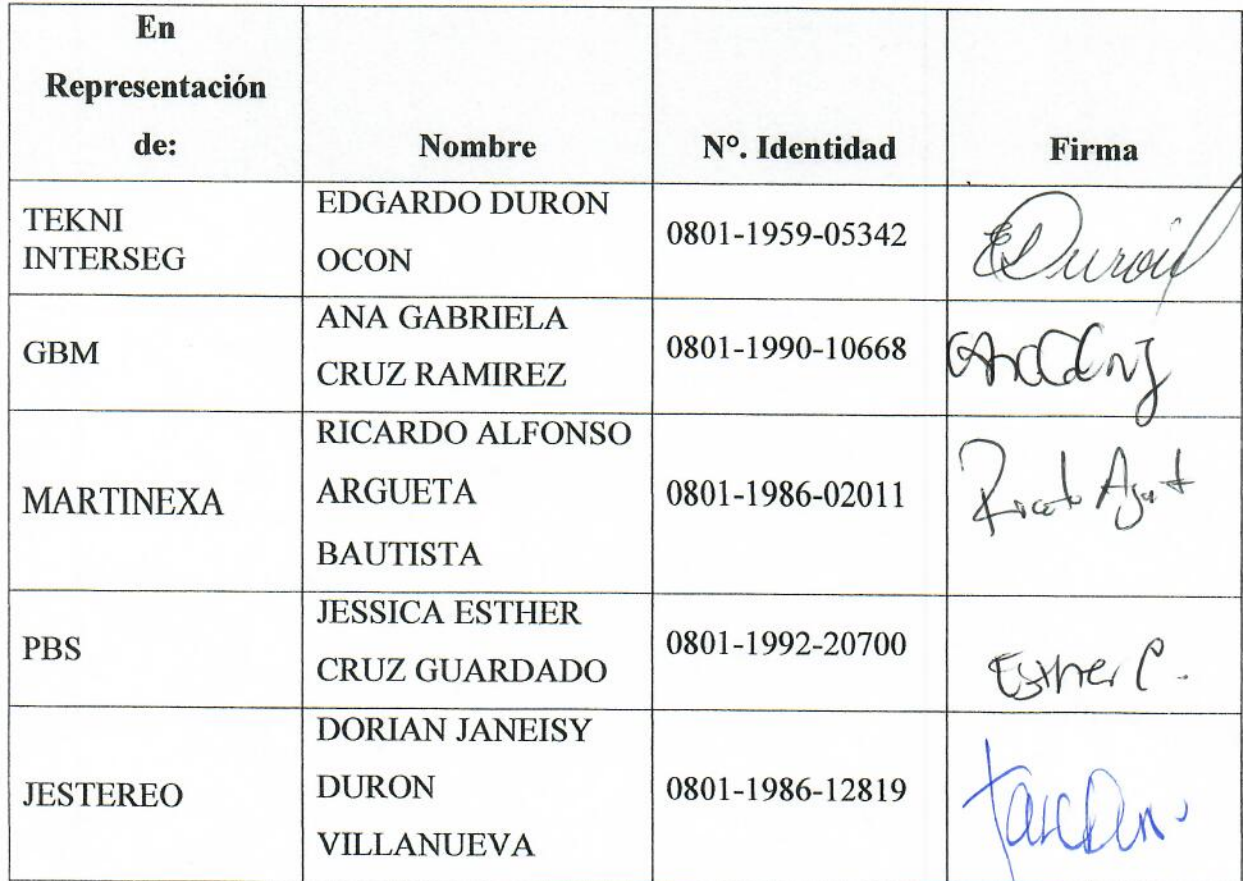 En
Representación
de:
Nombre
N°. Identidad
Firma
TEKNI
INTERSEG
EDGARDO DURON
OCON
0801-1959-05342
EDuron
GBM
ANA GABRIELA
CRUZ RAMIREZ
0801-1990-10668
MARTINEXA
RICARDO ALFONSO
ARGUETA
BAUTISTA
0801-1986-02011
PBS
JESSICA ESTHER
CRUZ GUARDADO
0801-1992-20700
Esther C.
JESTEREO
DORIAN JANEISY
DURON
VILLANUEVA
0801-1986-12819